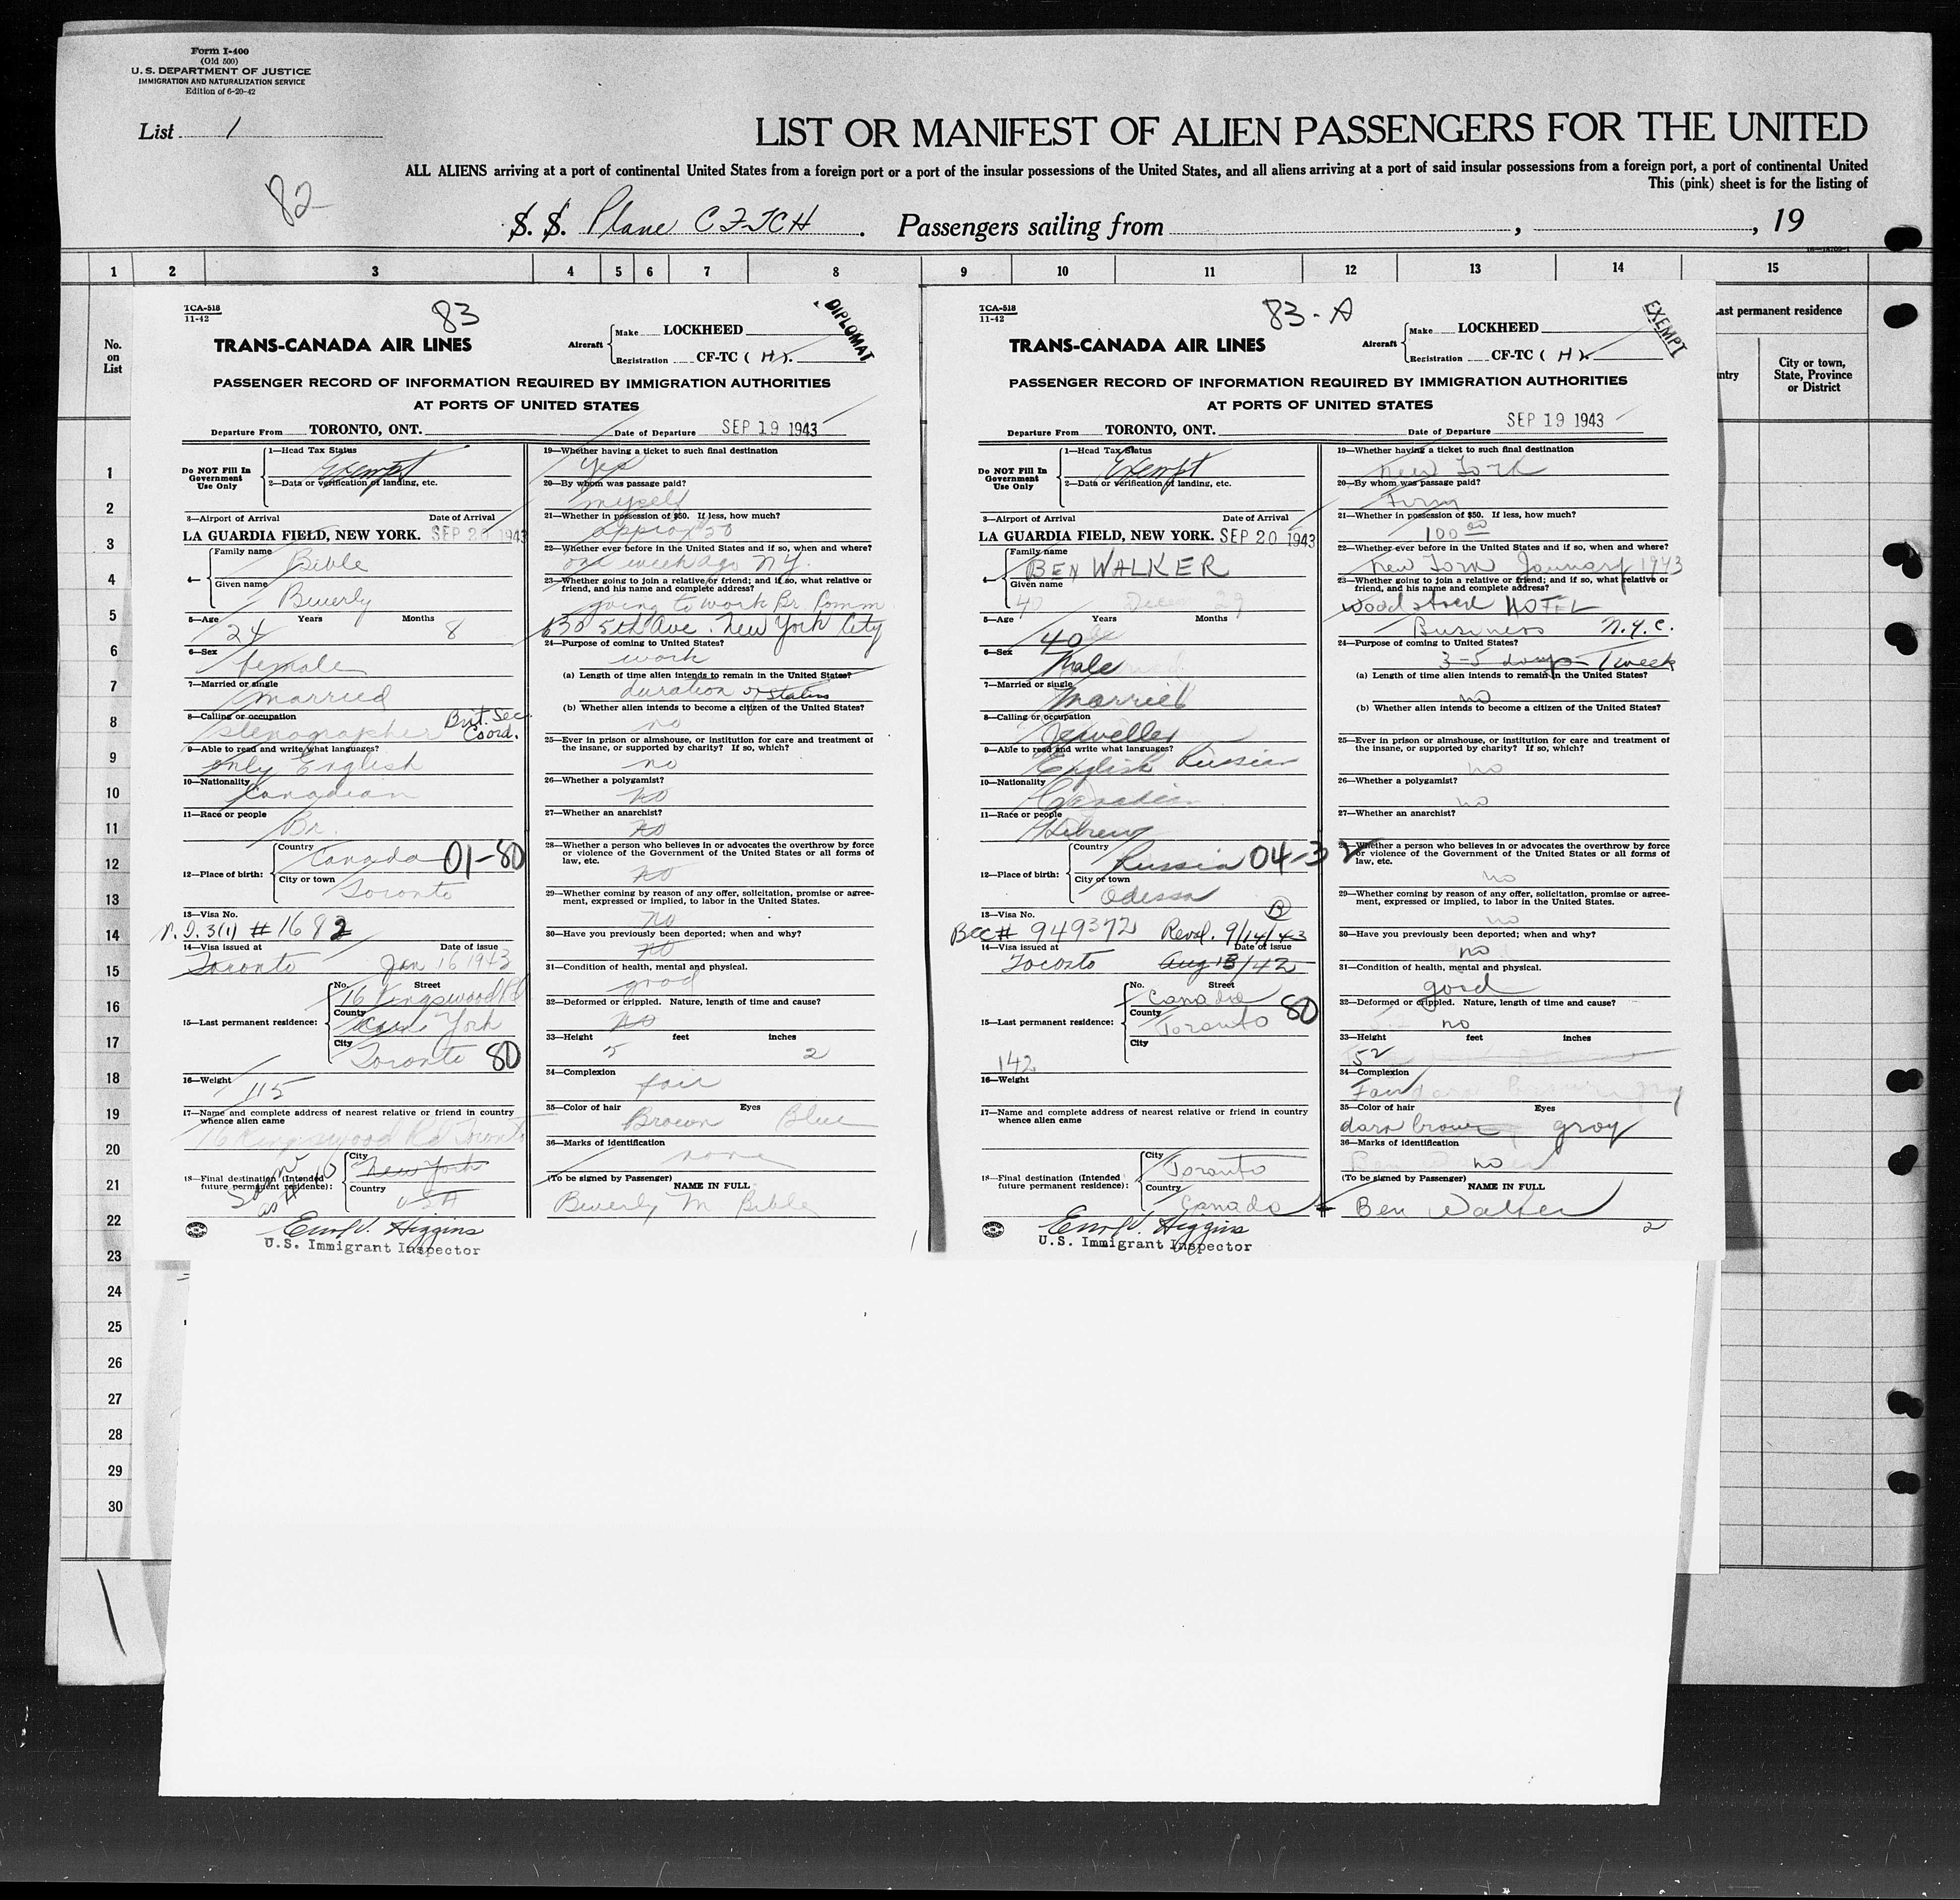 Form I-400
(Old 500)
U. S. DEPARTMENT OF JUSTICE
IMMIGRATION AND NATURALIZATION SERVICE
Edition of 6-20-42
List 1
82
LIST OR MANIFEST OF ALIEN PASSENGERS FOR THE UNITED
ALL ALIENS arriving at a port of continental United States from a foreign port or a port of the insular possessions of the United States, and all aliens arriving at a port of said insular possessions from a foreign port, a port of continental United
This (pink) sheet is for the listing of
S. S. Plane CFTCH. Passengers sailing from , , 19
1 2 3 4 5 6 7 8 9 10 11 12 13 14 15
No.
on
List
Last permanent residence
City or town,
State, Province
or District
1
2
3
4
5
6
7
8
9
10
11
12
13
14
15
16
17
18
19
20
21
22
23
24
25
26
27
28
29
30
TCA-518
11-42
83
DIPLOMAT
TRANS-CANADA AIR LINES
Aircraft
Make LOCKHEED
Registration CF-TC ( H ).
PASSENGER RECORD OF INFORMATION REQUIRED BY IMMIGRATION AUTHORITIES
AT PORTS OF UNITED STATES
Departure From TORONTO, ONT. Date of Departure SEP 19 1943
Do NOT Fill In
Government
Use Only
1—Head Tax Status
Exempt
2—Data or verification of landing, etc.
3—Airport of Arrival Date of Arrival
LA GUARDIA FIELD, NEW YORK. SEP 20 1943
4— Family name
Bible
Given name
Beverly
5—Age Years Months
24 8
6—Sex
female
7—Married or single
married
8—Calling or occupation
stenographer Brit. Sec. Coord.
9—Able to read and write what languages?
only English
10—Nationality
Canadian
11—Race or people
Br.
12—Place of birth:
Country
Canada 01-80
City or town
Toronto
13—Visa No.
# 1682
14—Visa issued at Date of issue
Toronto Jan 16 1943
15—Last permanent residence:
No. Street
16 Kingswood Rd
County
York
City
Toronto 80
16—Weight
115
17—Name and complete address of nearest relative or friend in country
whence alien came
16 Kingswood Rd Toronto
18—Final destination (Intended
future permanent residence):
City
New York
Country
USA
U.S. Immigrant Inspector
19—Whether having a ticket to such final destination
yes
20—By whom was passage paid?
myself
21—Whether in possession of $50. If less, how much?
approx 50
22—Whether ever before in the United States and if so, when and where?
one week ago N.Y.
23—Whether going to join a relative or friend; and if so, what relative or
friend, and his name and complete address?
going to work Br. Comm
630 5th Ave. New York City
24—Purpose of coming to United States?
work
(a) Length of time alien intends to remain in the United States?
duration of status
(b) Whether alien intends to become a citizen of the United States?
no
25—Ever in prison or almshouse, or institution for care and treatment of
the insane, or supported by charity? If so, which?
no
26—Whether a polygamist?
no
27—Whether an anarchist?
no
28—Whether a person who believes in or advocates the overthrow by force
or violence of the Government of the United States or all forms of
law, etc.
no
29—Whether coming by reason of any offer, solicitation, promise or agree-
ment, expressed or implied, to labor in the United States.
no
30—Have you previously been deported; when and why?
no
31—Condition of health, mental and physical.
good
32—Deformed or crippled. Nature, length of time and cause?
no
33—Height feet inches
5 2
34—Complexion
fair
35—Color of hair Eyes
Brown Blue
36—Marks of identification
none
(To be signed by Passenger) NAME IN FULL
Beverly M Bible
TCA-518
11-42
83-A
EXEMPT
TRANS-CANADA AIR LINES
Aircraft
Make LOCKHEED
Registration CF-TC ( H )
PASSENGER RECORD OF INFORMATION REQUIRED BY IMMIGRATION AUTHORITIES
AT PORTS OF UNITED STATES
Departure From TORONTO, ONT. Date of Departure SEP 19 1943
Do NOT Fill In
Government
Use Only
1—Head Tax Status
Exempt
2—Data or verification of landing, etc.
3—Airport of Arrival Date of Arrival
LA GUARDIA FIELD, NEW YORK. SEP 20 1943
4— Family name
BEN WALKER
Given name
5—Age Years Months
40
6—Sex
Male
7—Married or single
Married
8—Calling or occupation
Jeweller
9—Able to read and write what languages?
English Russian
10—Nationality
Canadian
11—Race or people
Hebrew
12—Place of birth:
Country
Russia 04-32
City or town
Odessa
13—Visa No.
Bcc# 949372 Reval. 9/14/43
14—Visa issued at Date of issue
Toronto Aug 13/42
15—Last permanent residence:
No. Street
Canada
County
Toronto 80
City
142
16—Weight
17—Name and complete address of nearest relative or friend in country
whence alien came
18—Final destination (Intended
future permanent residence):
City
Toronto
Country
Canada
U.S. Immigrant Inspector
19—Whether having a ticket to such final destination
New York
20—By whom was passage paid?
Firm
21—Whether in possession of $50. If less, how much?
100.00
22—Whether ever before in the United States and if so, when and where?
New York January 1943
23—Whether going to join a relative or friend; and if so, what relative or
friend, and his name and complete address?
Woodstock HOTEL
Business N.Y.C.
24—Purpose of coming to United States?
3-5 days 1 week
(a) Length of time alien intends to remain in the United States?
no
(b) Whether alien intends to become a citizen of the United States?
25—Ever in prison or almshouse, or institution for care and treatment of
the insane, or supported by charity? If so, which?
no
26—Whether a polygamist?
no
27—Whether an anarchist?
28—Whether a person who believes in or advocates the overthrow by force
or violence of the Government of the United States or all forms of
law, etc.
no
29—Whether coming by reason of any offer, solicitation, promise or agree-
ment, expressed or implied, to labor in the United States.
no
30—Have you previously been deported; when and why?
no
31—Condition of health, mental and physical.
good
32—Deformed or crippled. Nature, length of time and cause?
no
33—Height feet inches
52
34—Complexion
Fair
35—Color of hair Eyes
dark brown gray
36—Marks of identification
no
(To be signed by Passenger) NAME IN FULL
Ben Walker
2